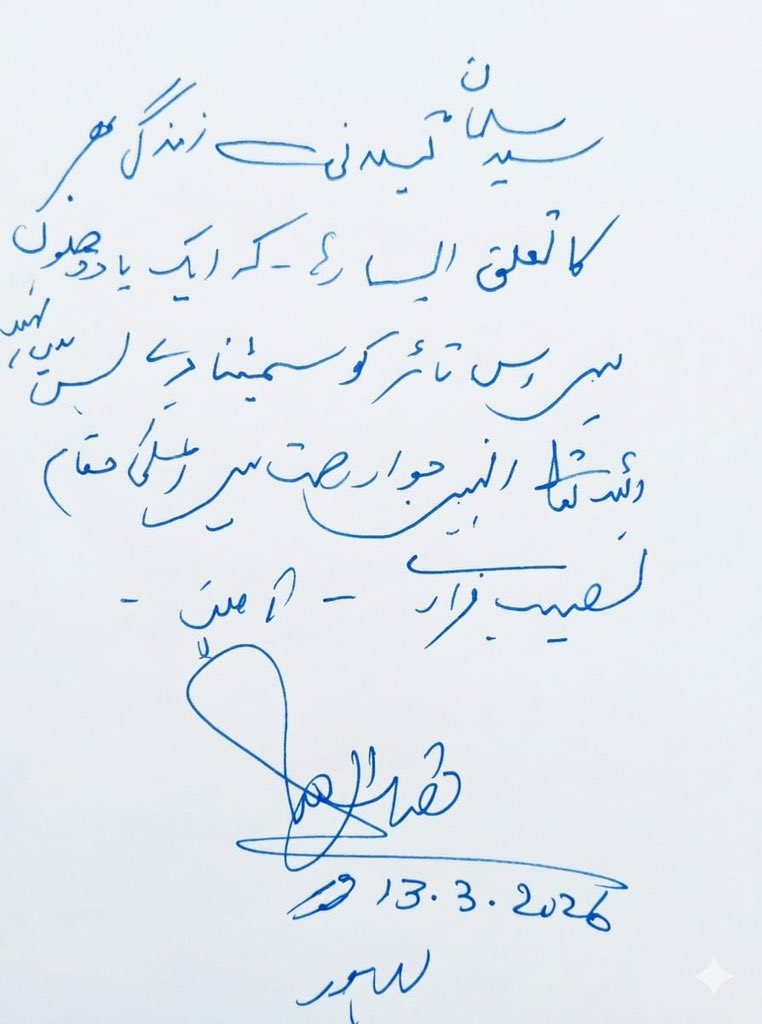 سید سلمان گیلانی سے زندگی بھر
کا تعلق ایسا رہا - کہ ایک یا دو جملوں
میں اس تاثر کو سمیٹنا میرے بس میں نہیں
اللہ تعالیٰ انہیں جوار رحمت میں اعلیٰ مقام
نصیب فرمائے - آمین -
13.3.2026
لاہور